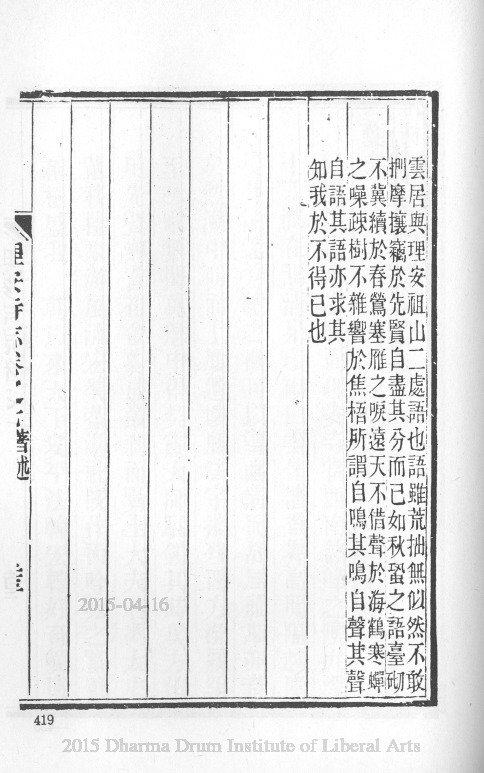 雲居與理安祖山二處語也語雖荒拙無似然不敢
捫摩攘竊於先賢自盡其分而已如秋蛩之語臺砌
不冀續於春鶯塞雁之唳遠天不借聲於海鶴寒蟬
之噪疎樹不雜響於焦梧所謂自鳴其鳴自聲其聲
自語其語亦求其
知我於不得已也
理安寺志卷 著述
419
2015-04-16
2015 Dharma Drum Institute of Liberal Arts